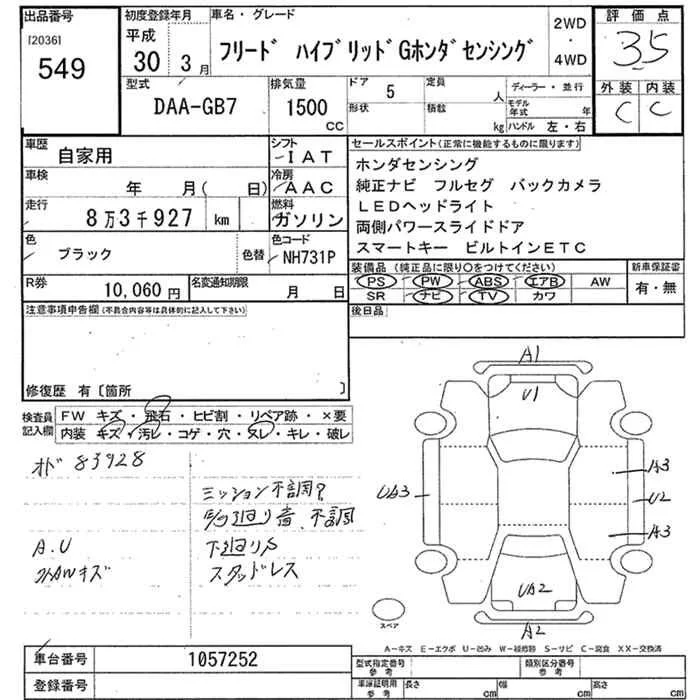 出品番号
[2036]
549
初度登録年月
平成
30 3月
車名・グレード
フリード ハイブリッドGホンダセンシング
2WD
・
4WD
評価点
3.5
外装 内装
C C
型式
DAA-GB7
排気量
1500
CC
ドア 5
形状
定員 人
積数 kg
ディーラー・並行
モデル年式 年
ハンドル 左・右
車歴
自家用
シフト
IAT
車検
年 月( 日)
冷房
AAC
走行
8万3千927 km
燃料
ガソリン
色
ブラック
色替
色コード
NH731P
R券
10,060円
名変通知期限
月 日
セールスポイント(正常に機能するものに限ります)
ホンダセンシング
純正ナビ フルセグ バックカメラ
LEDヘッドライト
両側パワースライドドア
スマートキー ビルトインETC
装備品(純正品に限り○をつけてください)
PS PW ABS エアB AW
SR ナビ TV カワ
新車保証書
有・無
後日品
注意事項申告欄(不具合内容等は具体的に記入して下さい)
修復歴 有〔箇所 〕
検査員
記入欄
FW キズ・飛石・ヒビ割・リペア跡・×要
内装 キズ・汚レ・コゲ・穴・スレ・キレ・破レ
オド 83928
ミッション不調?
不調
A.U
下廻りS
キズ
スタッドレス
A1
U1
UA3
A3
U2
A3
UA2
A2
スペア
A-キズ E-エクボ U-凹み W-補修跡 S-サビ C-腐食 XX-交換済
車台番号
1057252
登録番号
型式指定番号
参考
類別区分番号
参考
車庫証明用
参考
長さ cm
幅 cm
高さ cm